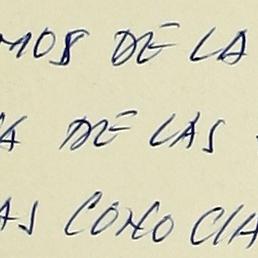 MOS DE LA
A DE LAS
AS COMO CIA